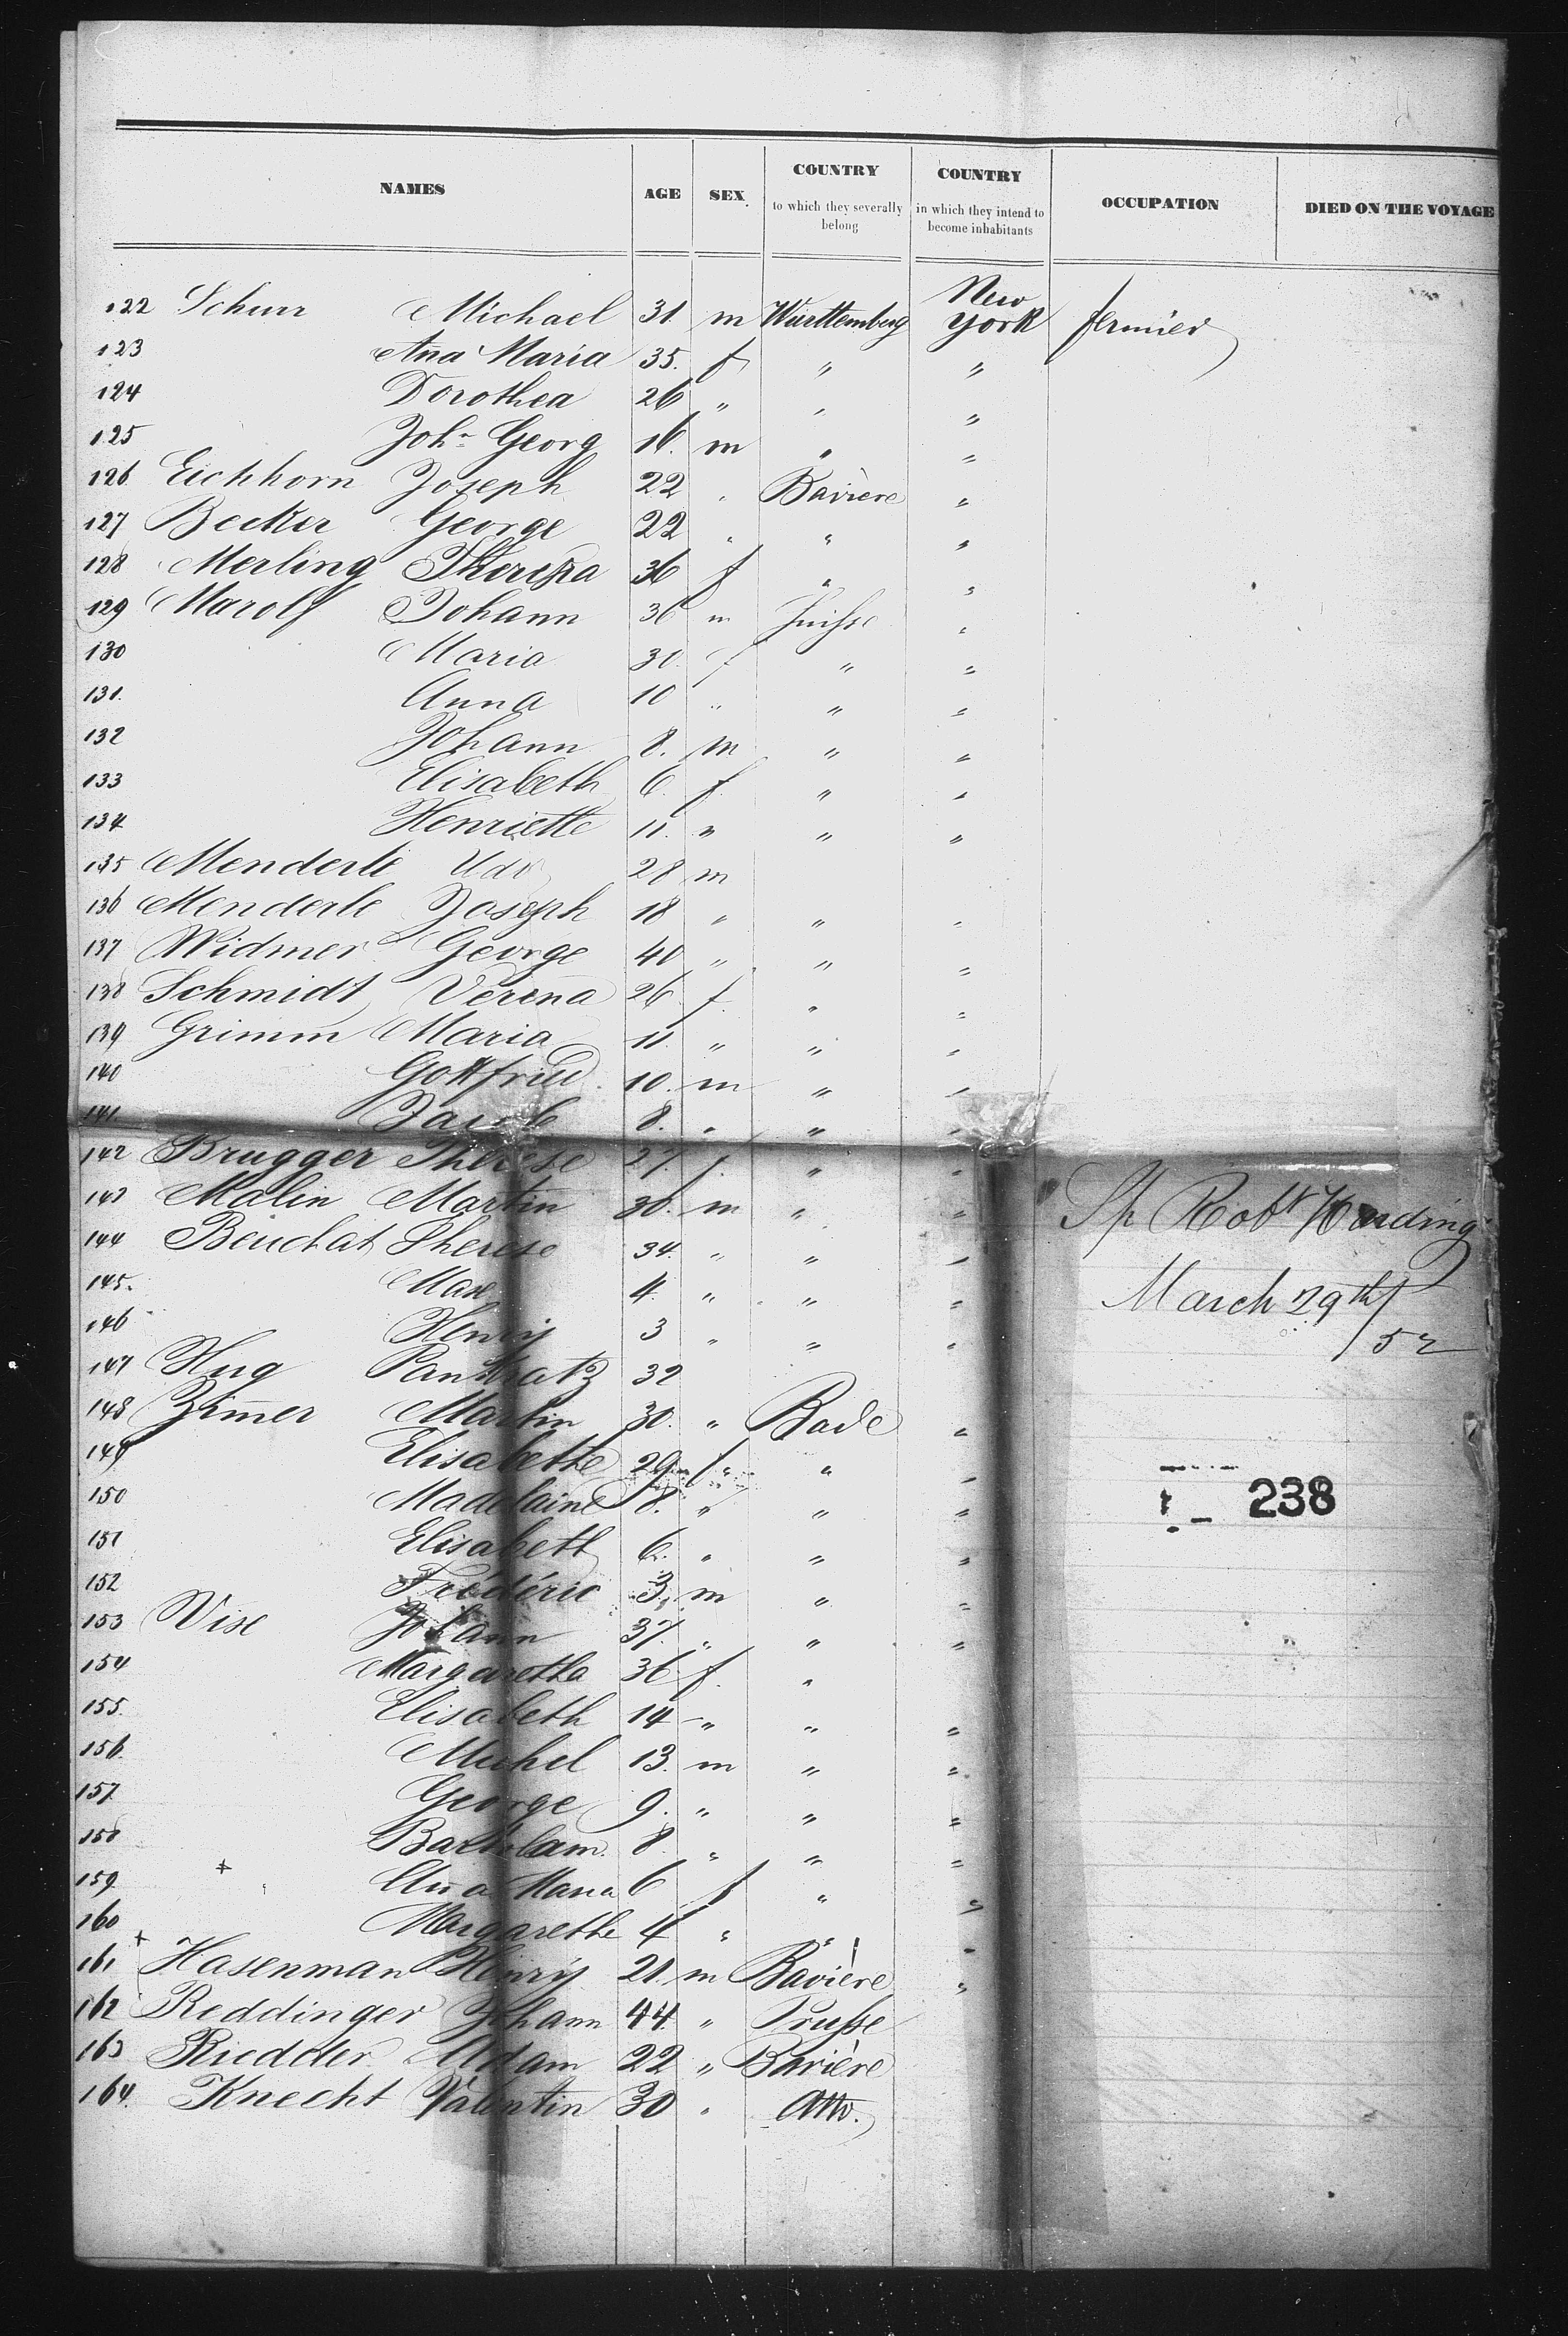 NAMES AGE SEX COUNTRY to which they severally belong COUNTRY in which they intend to become inhabitants OCCUPATION DIED ON THE VOYAGE
122 Schurr Michael 31. m Württemberg New York fermier
123 Ana Maria 35. f " "
124 Dorothea 26 " " "
125 Joh. Georg 16. m " "
126 Eichhorn Joseph 22 " Bavière "
127 Becker George 22 " " "
128 Merling Thereza 36 f " "
129 Marolf Johann 36 m Suisse "
130 Maria 30. f " "
131. Anna 10 " " "
132 Johann 8. m " "
133 Elisabeth 6. f " "
134 Henriette 11. " " "
135 Menderle 28 m
136 Menderle Joseph 18 " " "
137 Widmer George 40 " " "
138 Schmidt Verena 26 f. " "
139 Grimm Maria 11. " " "
140 Gottfried 10. m " "
141. Jacob 8. " " "
142 Brugger Therese 27. f. " "
143 Malin Martin 30. m " "
144 Beuchat Therese 34. " " "
145. Max 4. " " "
146 Henry 3 " " "
147 Hug Pankratz 32
148 Zimer Martin 30. " Bade "
149 Elisabethe 29 f " "
150 Madelaine 8. " " "
151 Elisabeth 6. " " "
152 Frédéric 3. m " "
153 Wise Johann 37. " " "
154 Margaretha 36 f. "
155. Elisabeth 14 " " "
156. Michel 13. m " "
157 George 9. " " "
158 Bartolam. 8. " " "
159. Ana Maria 6 f " "
160 Margarethe 4 " " "
161 Hasenman Henry 21. m Bavière "
162 Reddinger Johann 44. " Prusse
163 Riedder Adam 22 " Bavière
164. Knecht Valentin 30 " Atto.
Sp Robt Harding
March 29th/52
238